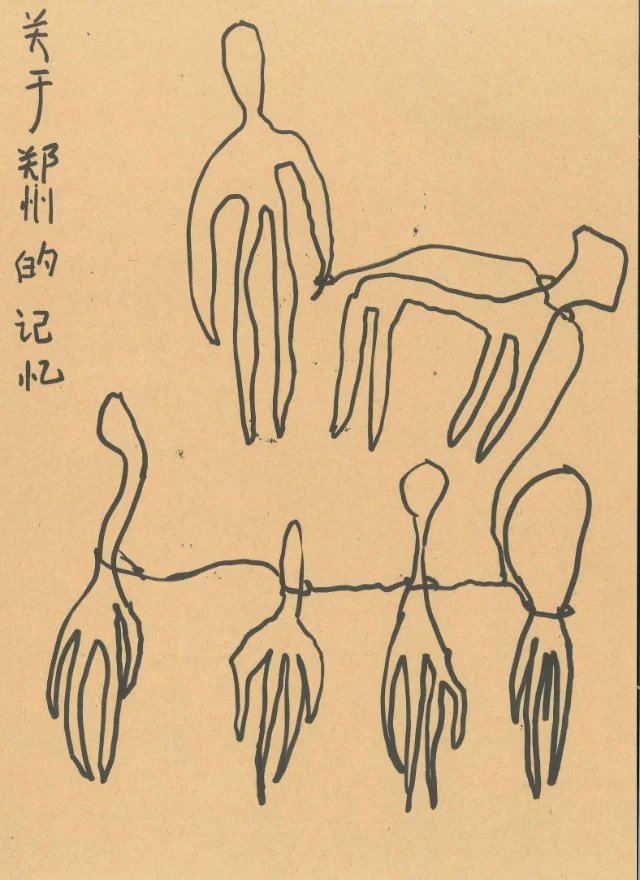 关于郑州的记忆